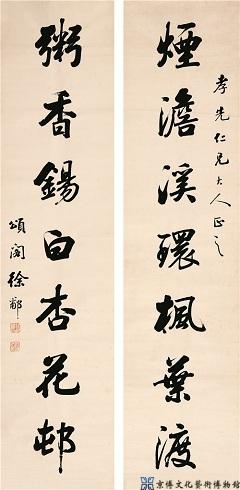 孝先仁兄大人正之
煙澹溪環楓葉渡
粥香餳白杏花邨
頌閣徐郙
京博文化藝術博物館